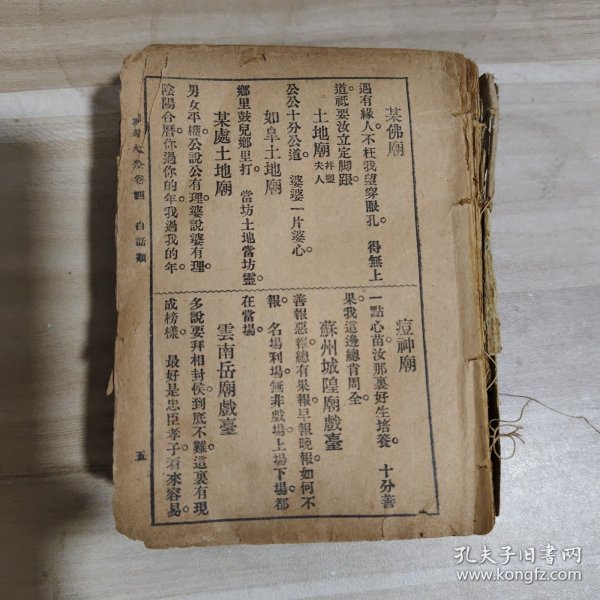 某佛廟
遇有緣人。不枉我望穿眼孔。　得無上
道。祗要汝立定脚跟。
土地廟 并塑夫人
公公十分公道。　婆婆一片婆心。
如皐土地廟
鄉里鼓兒鄉里打。　當坊土地當坊靈。
某處土地廟
男女平權。公說公有理。婆說婆有理。
陰陽合曆。你過你的年。我過我的年。
痘神廟
一點心苗。汝那裏好生培養。　十分善
果。我這邊總肯周全。
蘇州城隍廟戲臺
善報惡報。總有果報。早報晚報。如何不
報。　名場利場。無非戲場。上場下場。都
在當場。
雲南岳廟戲臺
多說要拜相封侯。到底不難。這裏有現
成榜樣。　最好是忠臣孝子。看來容易。
大全卷四　白話類
五
孔夫子旧书网
www.kongfz.com